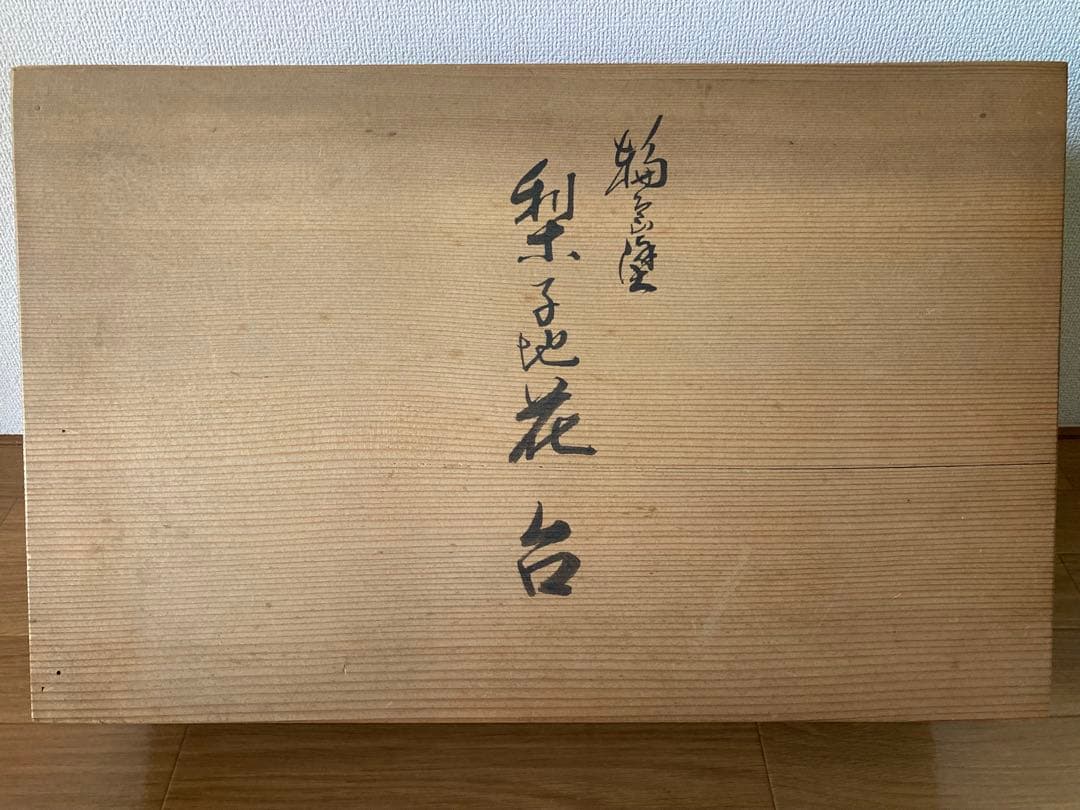 輪島塗
梨子地花台